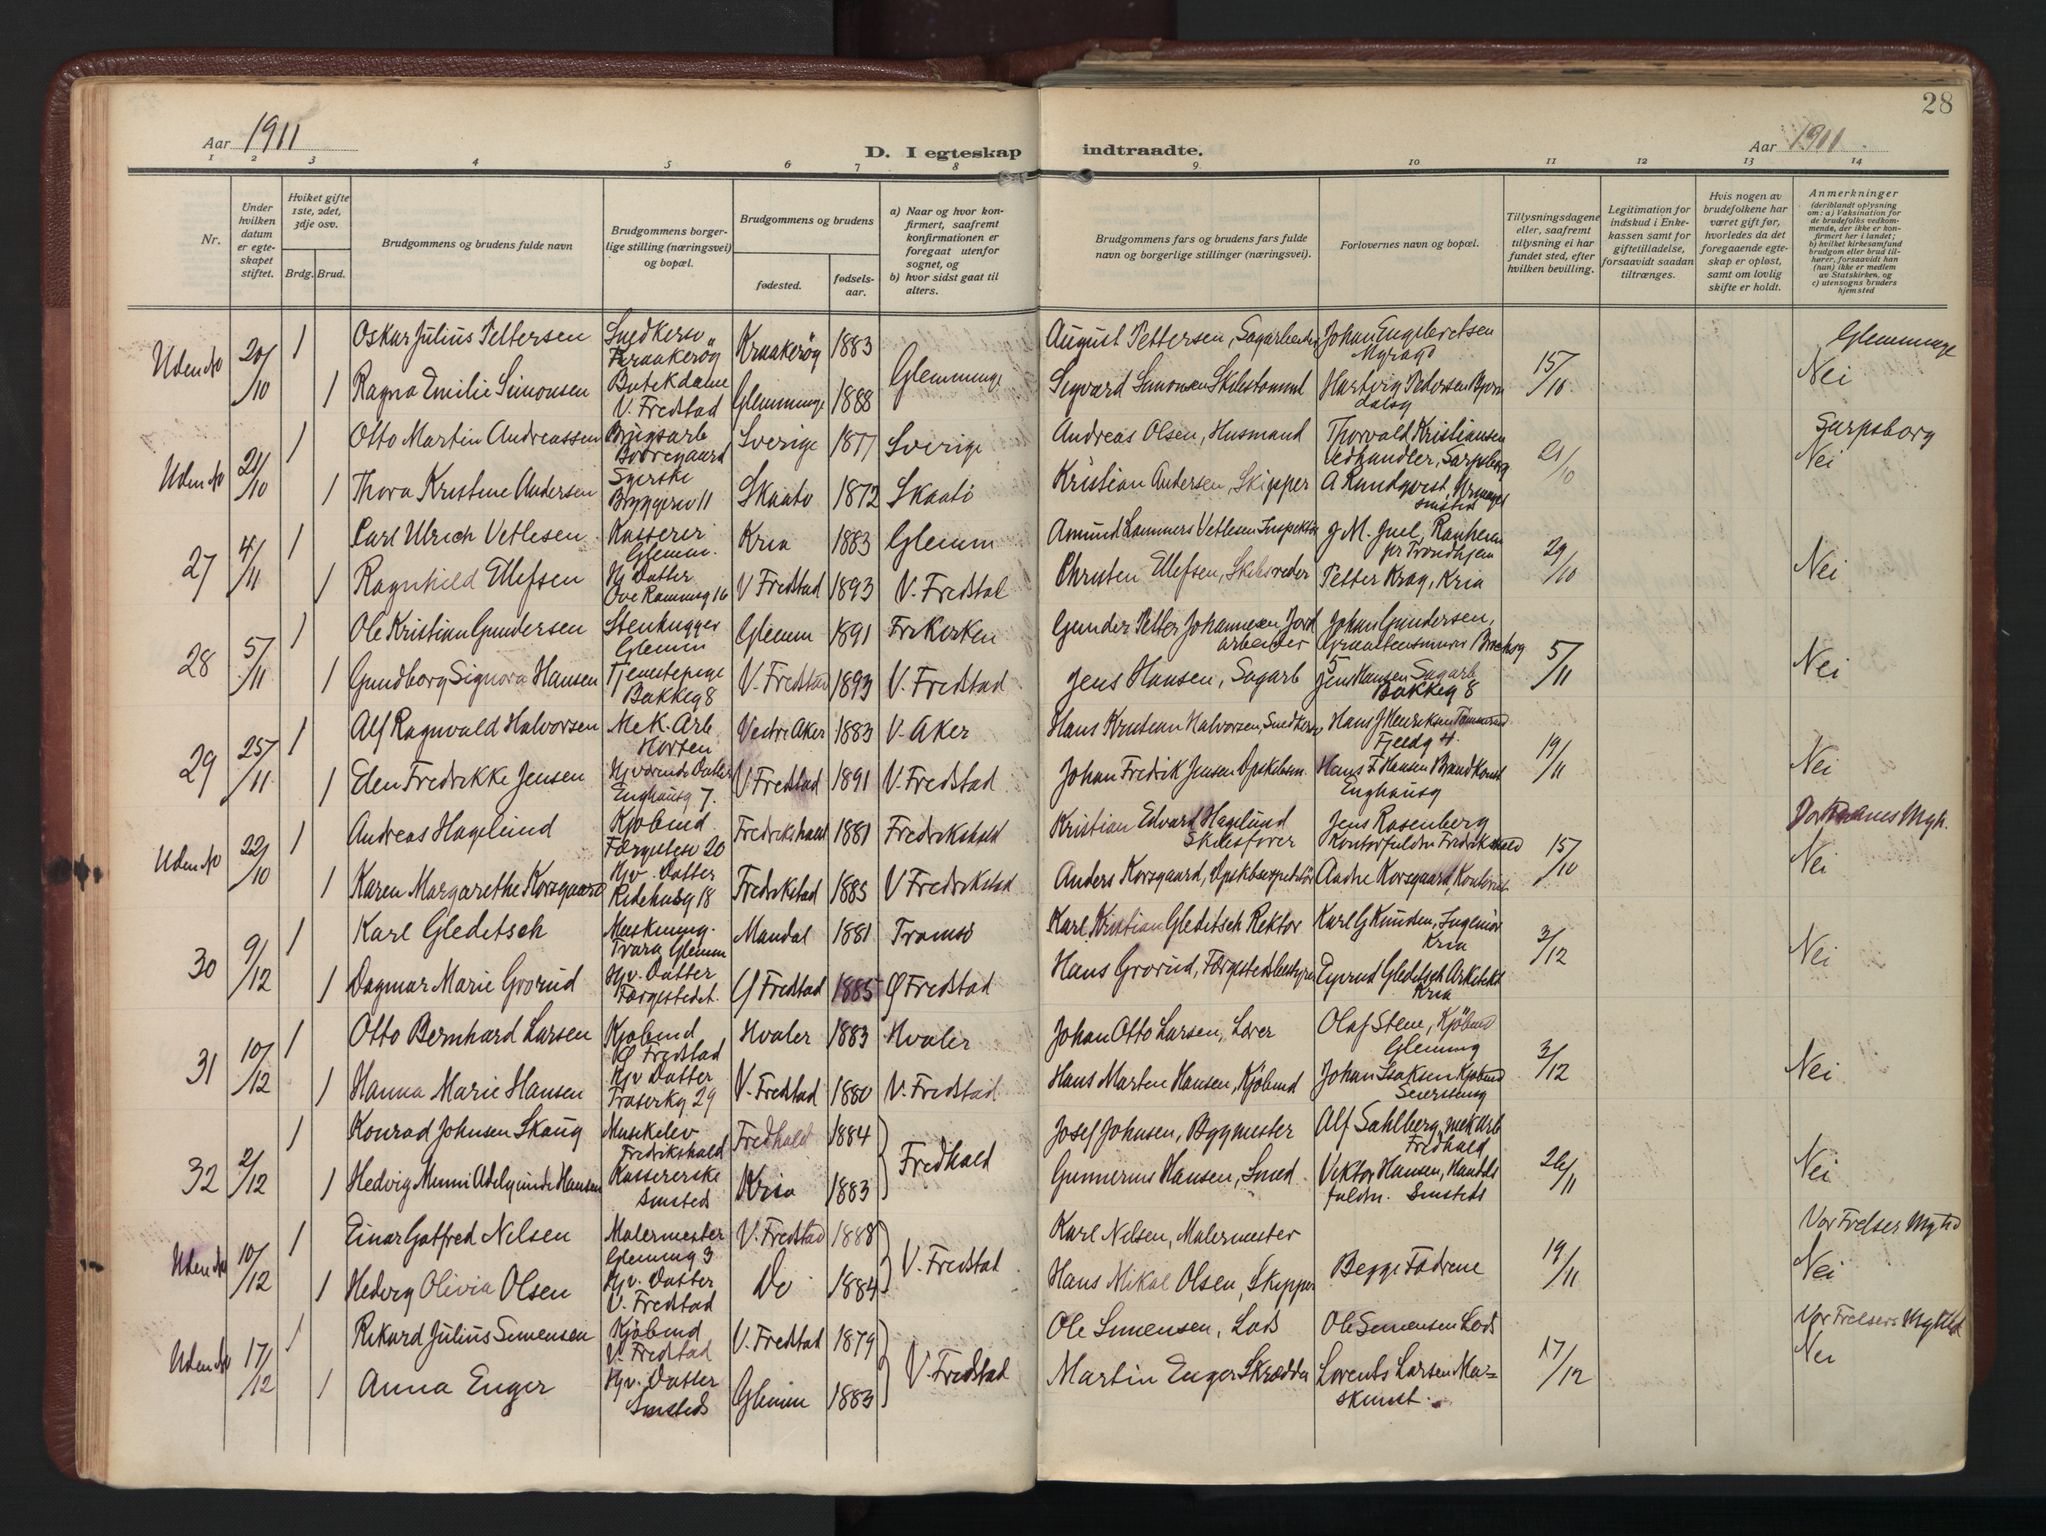 28
Aar 1911
D. I egteskap indtraadte.
Aar 1911
1 2 3 4 5 6 7 8 9. 10 11 12 13 14
Nr.
Under hvilken datum er egteskapet stiftet.
Hviket gifte 1ste, 2det, 3dje osv.
Brdg. Brud.
Brudgommens og brudens fulde navn
Brudgommens borgerlige stilling (næringsvei) og bopæl.
Brudgommens og brudens
fødested.
fødselsaar.
a) Naar og hvor konfirmert, saafremt konfirmationen er foregaat utenfor sognet, og
b) hvor sidst gaat til alters.
Brudgommens fars og brudens fars fulde navn og borgerlige stillinger (næringsvei).
Forlovernes navn og bopæl.
Tillysningsdagene eller, saafremt tilysning ei har fundet sted, efter hvilken bevilling.
Legitimation for indskud i Enkekassen samt for giftetilladelse, forsaavidt saadan tiltrænges.
Hvis nogen av brudefolkene har været gift før, hvorledes da det foregaaende egteskap er opløst, samt om lovlig skifte er holdt.
Anmerkninger
(deriblandt oplysning om: a) Vaksination for de brudefolks vedkommende, der ikke er konfirmert her i landet; b) hvilket kirkesamfund brudgom eller brud tilhører, forsaavidt han (hun) ikke er medlem av Statskirken, og c) utensogns bruders hjemsted
Uden No 20/10 1 Oskar Julius Pettersen Snedkersv Kraakerøg Kraakerøg 1883 Glemminge August Pettersen, Sagarbeider Johan Engebretsen 15/10 Glemminge
1 Ragna Emilie Simonsen Butikdame V. Fredstad Glemminge 1888 Sigvard Simonsen Skibstømmt Hartvig Pedersen Nei
Uden No 21/10 1 Otto Martin Andreassen Brugsarb Borregaard Sverige 1877 Sverige Andreas Olsen, Husmand Thorvald Kristiansen Vedhandler, Sarpsborg 21/10 Sarpsborg
1 Thora Kristine Andersen Syerske Bryggeriv 11 Skaatø 1872 Skaatø Kristian Andersen, Skipper A Rundqvist Nei
27 4/11 1 Carl Ulrich Vetlesen Kasserer Glemm. Kria 1883 Glemm Amund Lammers Vetlesen Inspektør J. M. Juel, Ranheim pr Trondhjem 29/10
1 Ragnhild Ellefsen Hj Datter 16 V Fredstad 1893 V. Fredstad Christen Ellefsen, Skibsreder Petter Krag, Kria Nei
28 5/11 1 Ole Kristian Gundersen Stenhugger Glemm Glemm 1891 Frikirken Gunder Petter Johannesen Jordarbeider Johan Gundersen, 5/11
1 Gundborg Signora Hansen Tjenestepige Bakkeg 8 V. Fredstad 1893 V. Fredstad Jens Hansen, Sagarb Jens Hansen Sagarb Bakkeg 8 Nei
29 25/11 1 Alf Ragnvald Halvorsen Mek. Arb. Horten Vestre Aker 1883 V. Aker Hans Kristian Halvorsen, Snedkersv Hans J Henriksen Tømmermd Fjeldg 4. 19/11
1 Elen Fredrikke Jensen Hjværende Datter Enghausg 7. V. Fredstad 1891 V. Fredstad Johan Fredrik Jensen Opskibsm. Hans F Hansen Brandkonst Enghausg Nei
Uden No 22/10 1 Andreas Hagelund Kjøbmd Færgelsv 20 Fredrikshald 1881 Fredrikshald Kristian Edvard Hagelund Skibsfører Jens Rosenberg Kontorfuldm Fredrikshald 15/10
1 Karen Margarethe Korsgaard Hjv. Datter Ridehusg 18 Fredrikstad 1885 V Fredrikstad Anders Korsgaard, Andre Korsgaard, Kontorist Nei
30 9/12 1 Karl Gleditsch Maskining. Trara Glemm Mandal 1881 Tromsø Karl Kristian Gleditsch Rektor Karl G Knudsen, Ingeniør Kria 3/12
1 Dagmar Marie Grorud Hjv. Datter Færgestedet. Ø Fredstad 1885 Ø Fredstad Hans Grorud, Færgestedsbestyrer Eyvind Gleditsch Arkitekt Kria Nei
31 10/12 1 Otto Bernhard Larsen Kjøbmd Ø Fredstad Hvaler 1883 Hvaler Johan Otto Larsen, Olaf Stene, Kjøbmd Glemmg 3/12
1 Hanna Marie Hansen Hjv Datter 29 V. Fredstad 1880 V. Fredstad Hans Marten Hansen, Kjøbmd Johan Isaksen Kjøbmd Seierstenog Nei
32 2/12 1 Konrad Johnsen Skaug Musikelev Fredrikshald Fredhald 1884 Fredhald Josef Johnsen, Bygmester Alf Sahlberg, mek Arb Fredhald 26/11
1 Hedvig Minni Adelgunde Hansen Kassererske Smsteds Kria 1883 Gunnerius Hansen, Smed. Viktor Hansen, Handlsfuldm. Smsteds Nei
Uden No 10/12 1 Einar Gotfred Nilsen Malermester Glemmg 3 V. Fredstad 1888 V. Fredstad Karl Nilsen, Malermester Begge Fædrene 19/11 Vor Frelser Mgld
1 Hedvig Olivia Olsen Hjv. Datter V. Fredstad Do 1884 Hans Mikal Olsen, Skipper Nei
Uden No 17/12 1 Rikard Julius Simensen Kjøbmd V. Fredstad V. Fredstad 1879 V. Fredstad Ole Simensen, Lods Ole Simensen Lods 17/12 Vor Frelsers Mghld
1 Anna Enger Hjv. Datter Smsteds Glemm 1883 Martin Enger Skrædder Lorents Larsen Maskinist. Nei